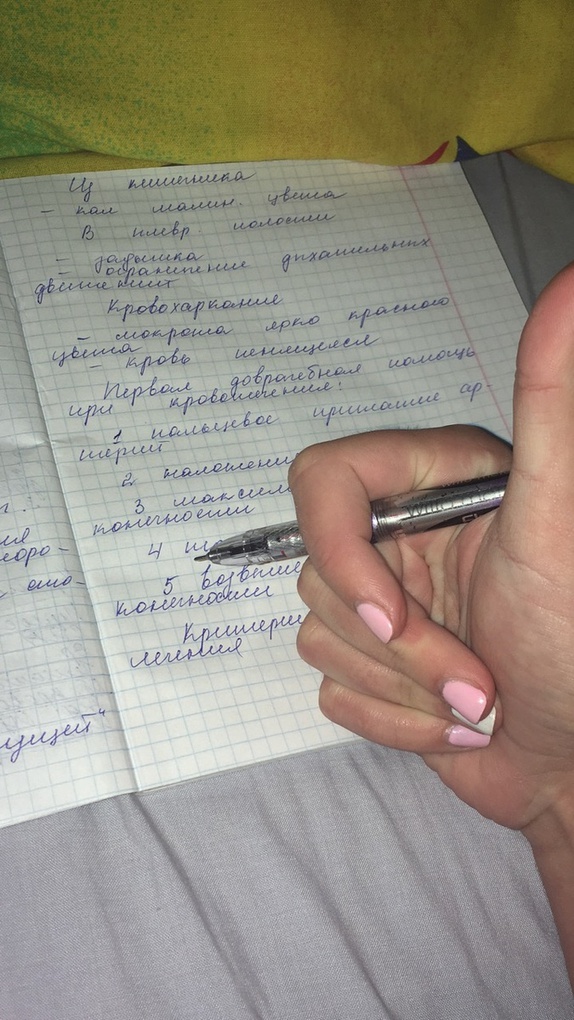 Из кишечника
- кал малин. цвета
В плевр. полости
- задышка
- ограничение дыхательных
движений
Кровохаркание
- мокрота ярко красного
цвета
- кровь пенящееся
Первая доврачебная помощь
при кровотечение:
1 пальцевое прижатие ар-
терий
2 наложени
3 максим
конечности
4
5 возвыше
конечности
Критери
лечения
ущей"